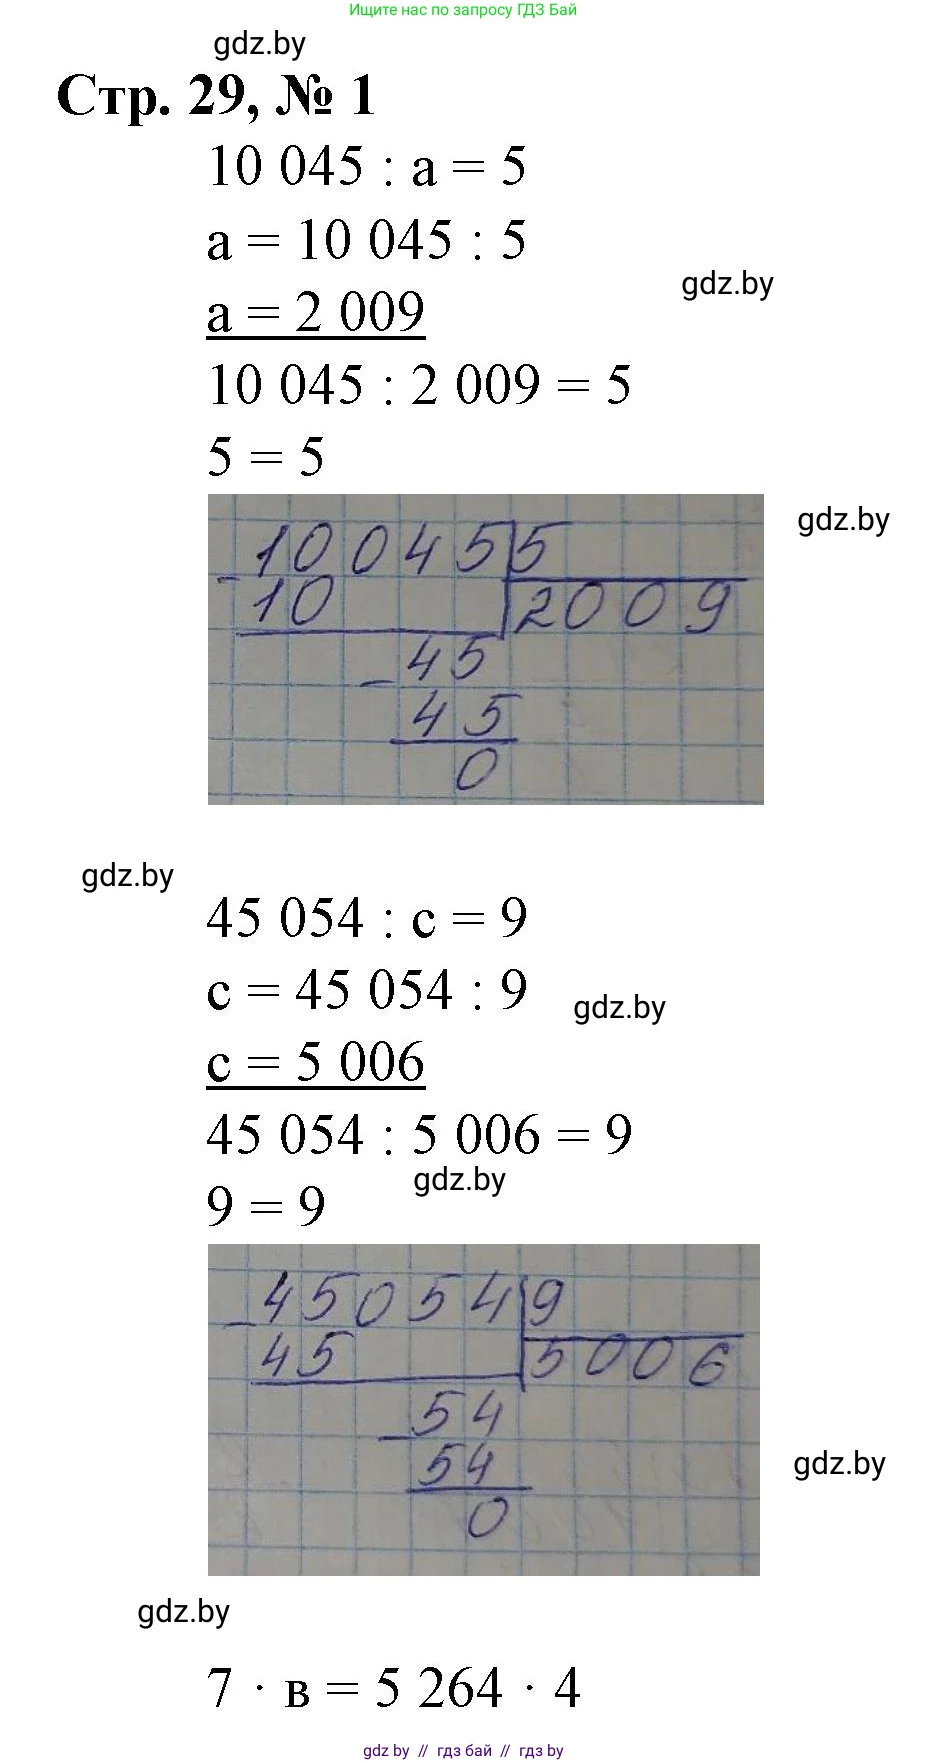 Ищите нас по запросу ГДЗ Бай
gdz.by
Стр. 29, № 1
10 045 : а = 5
а = 10 045 : 5
gdz.by
а = 2 009
10 045 : 2 009 = 5
5 = 5
gdz.by
- 10045 5
10 2009
- 45
45
0
gdz.by
45 054 : с = 9
с = 45 054 : 9
gdz.by
с = 5 006
45 054 : 5 006 = 9
gdz.by
9 = 9
- 45054 9
45 5006
- 54
54
0
gdz.by
gdz.by
7 · в = 5 264 · 4
gdz by // гдз бай // гдз by